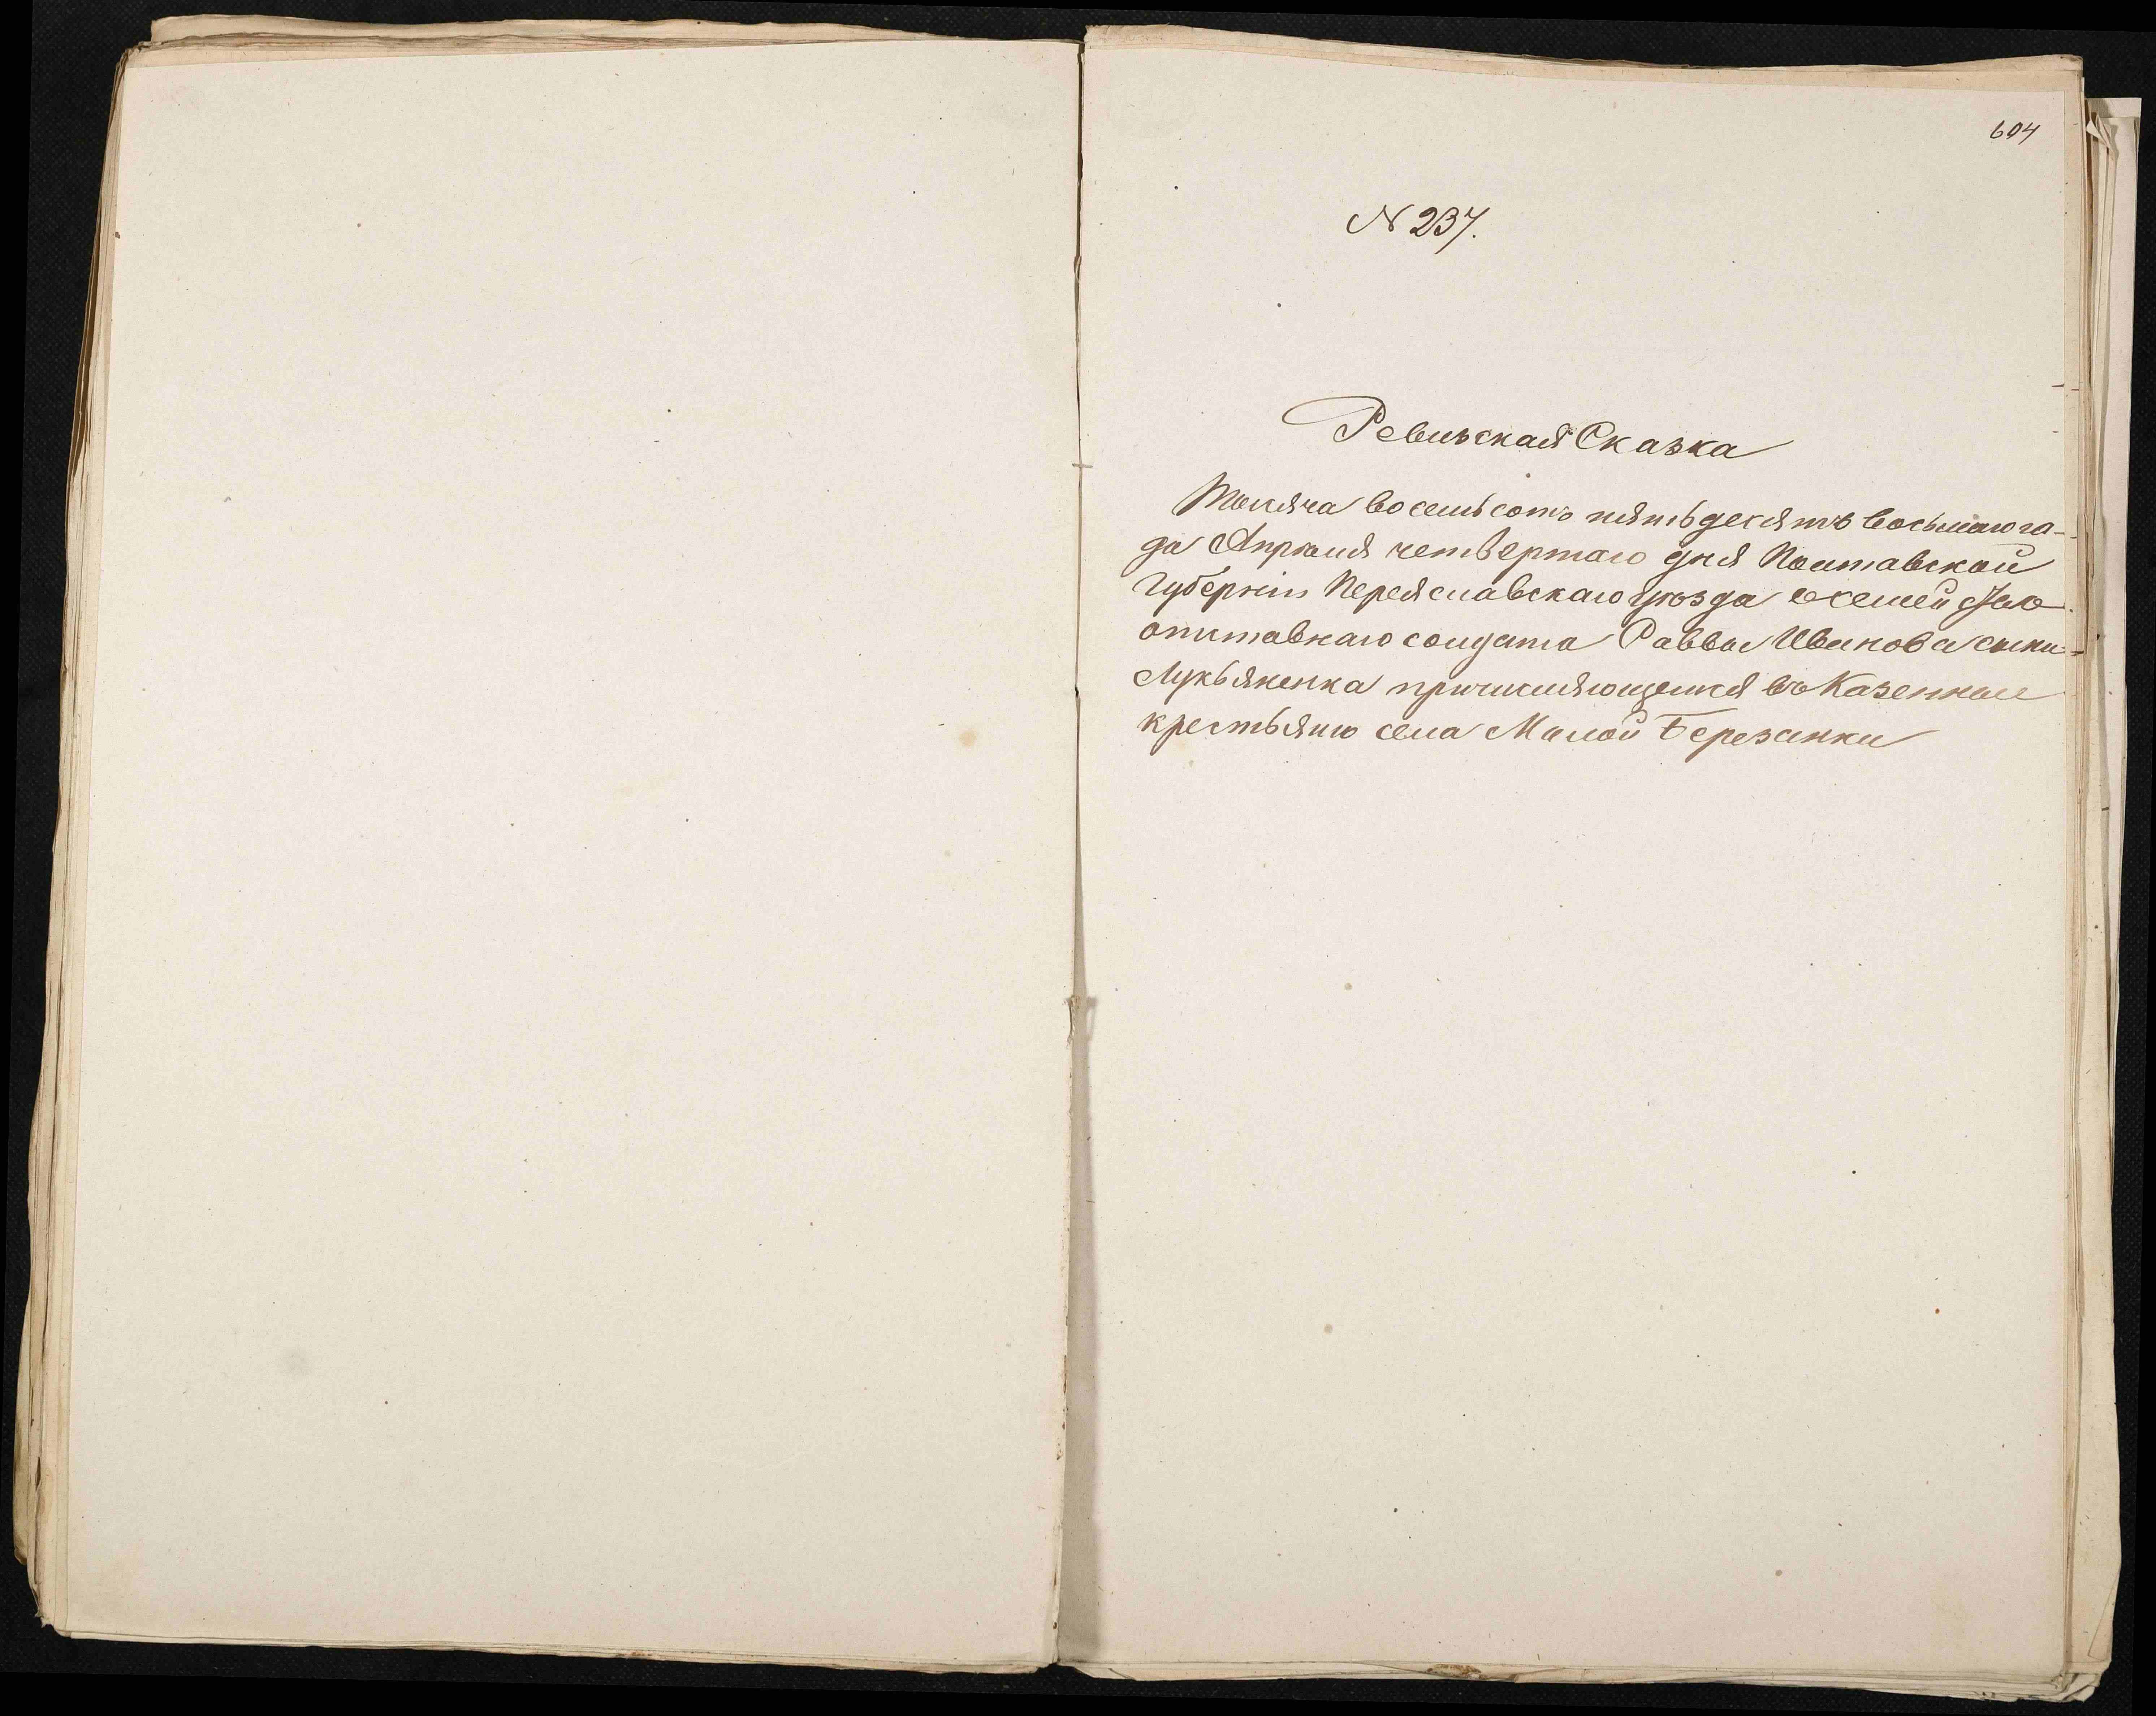 604
№ 237.
Ревизская Сказка
Тысяча восемьсотъ пятьдесятъ восьмаго го-
да Апрѣля четвертаго дня Полтавской
Губерніи Переяславскаго Уѣзда о семей
отставнаго солдата Саввы Иванова сына
Лукьяненка причисляющемся въ Казенные
крестьяне села Малой Березанки